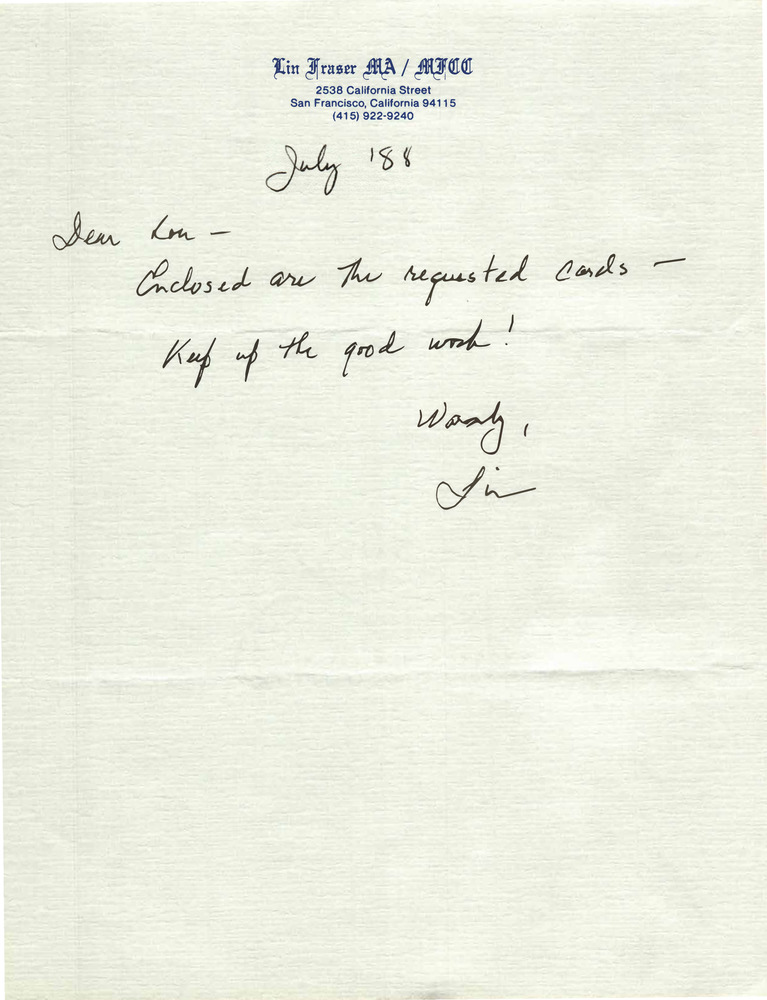 Lin Fraser MA / MFCC
2538 California Street
San Francisco, California 94115
(415) 922-9240
July '88
Dear Lou –
Enclosed are the requested cards –
Keep up the good work!
Warmly,
Lin